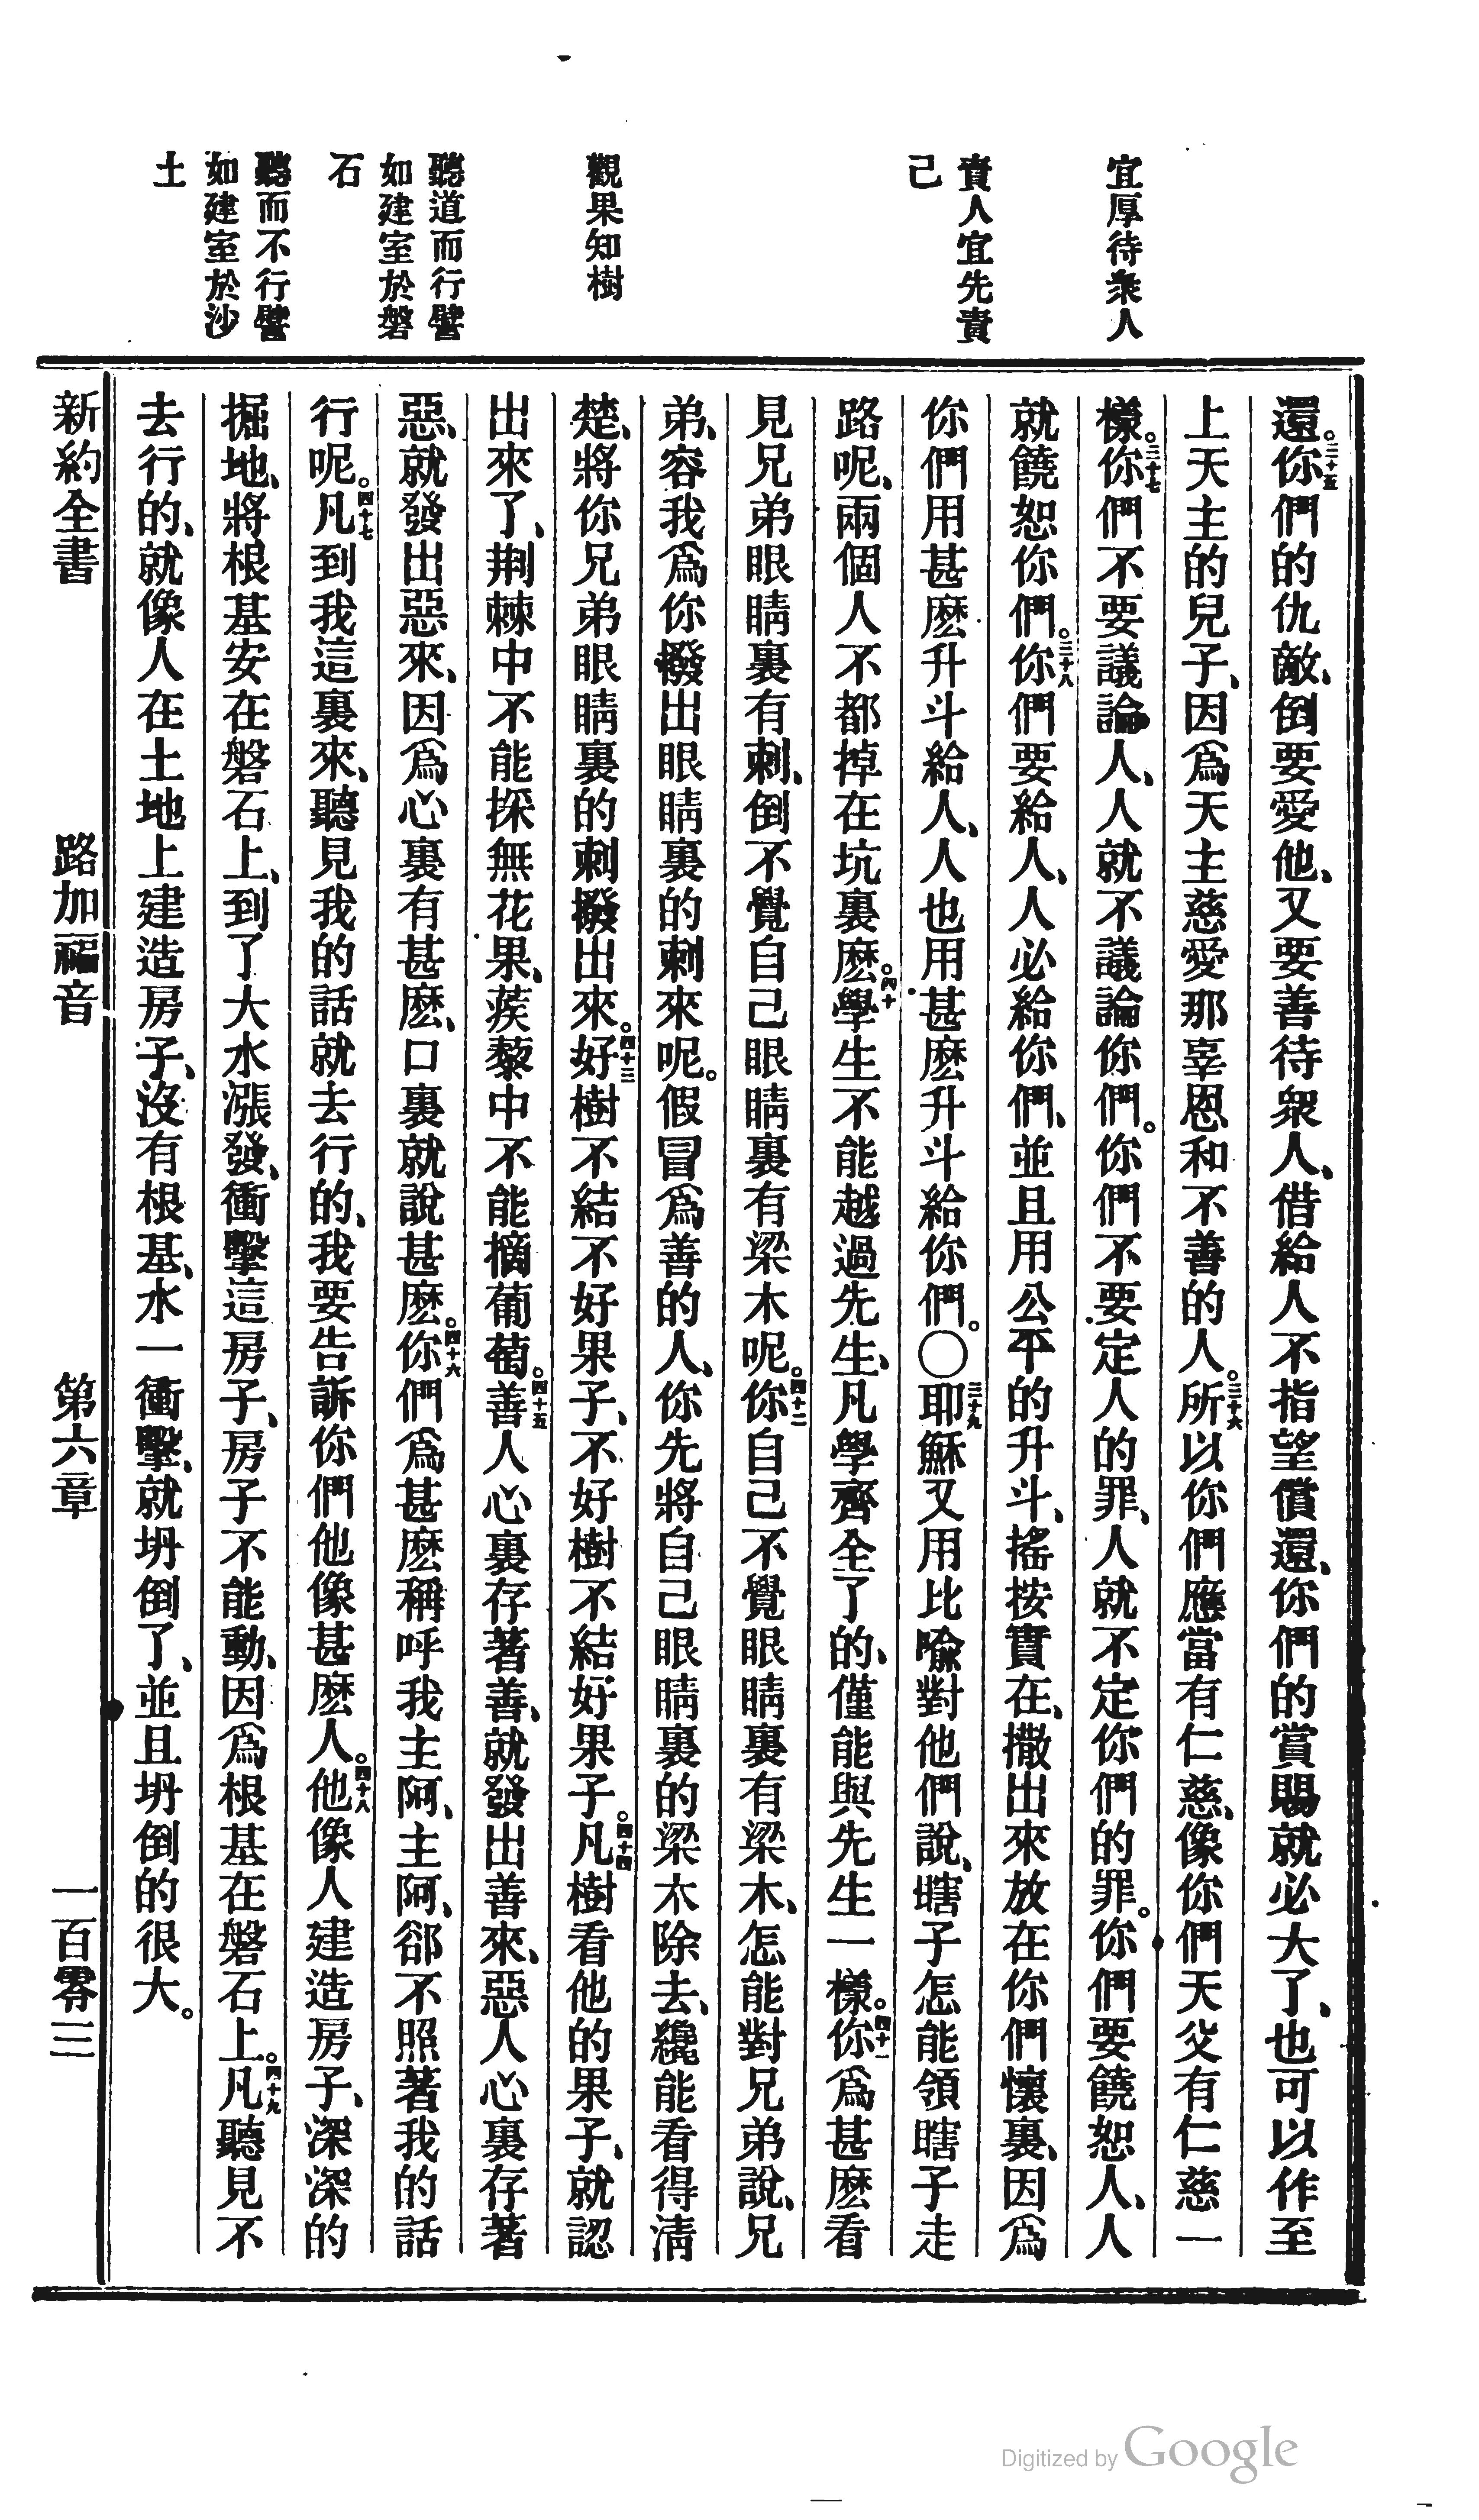 宜厚待衆人
責人宜先責
己
觀果知樹
聽道而行譬
如建室於磐
石
聽而不行譬
如建室於沙
土
還。三十五你們的仇敵、倒要愛他、又要善待衆人、借給人不指望償還、你們的賞賜就必大了、也可以作至
上天主的兒子、因爲天主慈愛那辜恩和不善的人。三十六所以你們應當有仁慈、像你們天父有仁慈一
樣。三十七你們不要議論人、人就不議論你們。你們不要定人的罪、人就不定你們的罪。你們要饒恕人、人
就饒恕你們。三十八你們要給人、人必給你們、並且用公平的升斗、搖按實在、撒出來放在你們懷裏、因爲
你們用甚麽升斗給人、人也用甚麽升斗給你們。〇三十九耶穌又用比喩對他們說、瞎子怎能領瞎子走
路呢、兩個人不都掉在坑裏麽。四十學生不能越過先生、凡學齊全了的、僅能與先生一樣。四十一你爲甚麽看
見兄弟眼睛裏有刺、倒不覺自己眼睛裏有梁木呢。四十二你自己不覺眼睛裏有梁木、怎能對兄弟說、兄
弟、容我爲你撥出眼睛裏的刺來呢。假冒爲善的人、你先將自己眼睛裏的梁木除去、纔能看得清
楚、將你兄弟眼睛裏的刺撥出來。四十三好樹不結不好果子、不好樹不結好果子。四十四凡樹看他的果子、就認
出來了、荆棘中不能採無花果、蒺藜中不能摘葡萄。四十五善人心裏存著善、就發出善來、惡人心裏存著
惡、就發出惡來、因爲心裏有甚麽、口裏就說甚麽。四十六你們爲甚麽稱呼我主阿、主阿、卻不照著我的話
行呢。四十七凡到我這裏來、聽見我的話就去行的、我要告訴你們他像甚麽人。四十八他像人建造房子、深深的
掘地、將根基安在磐石上、到了大水漲發、衝擊這房子、房子不能動、因爲根基在磐石上。四十九凡聽見不
去行的、就像人在土地上建造房子、沒有根基、水一衝擊、就坍倒了、並且坍倒的很大。
新約全書 路加福音 第六章 一百零三
Digitized by Google